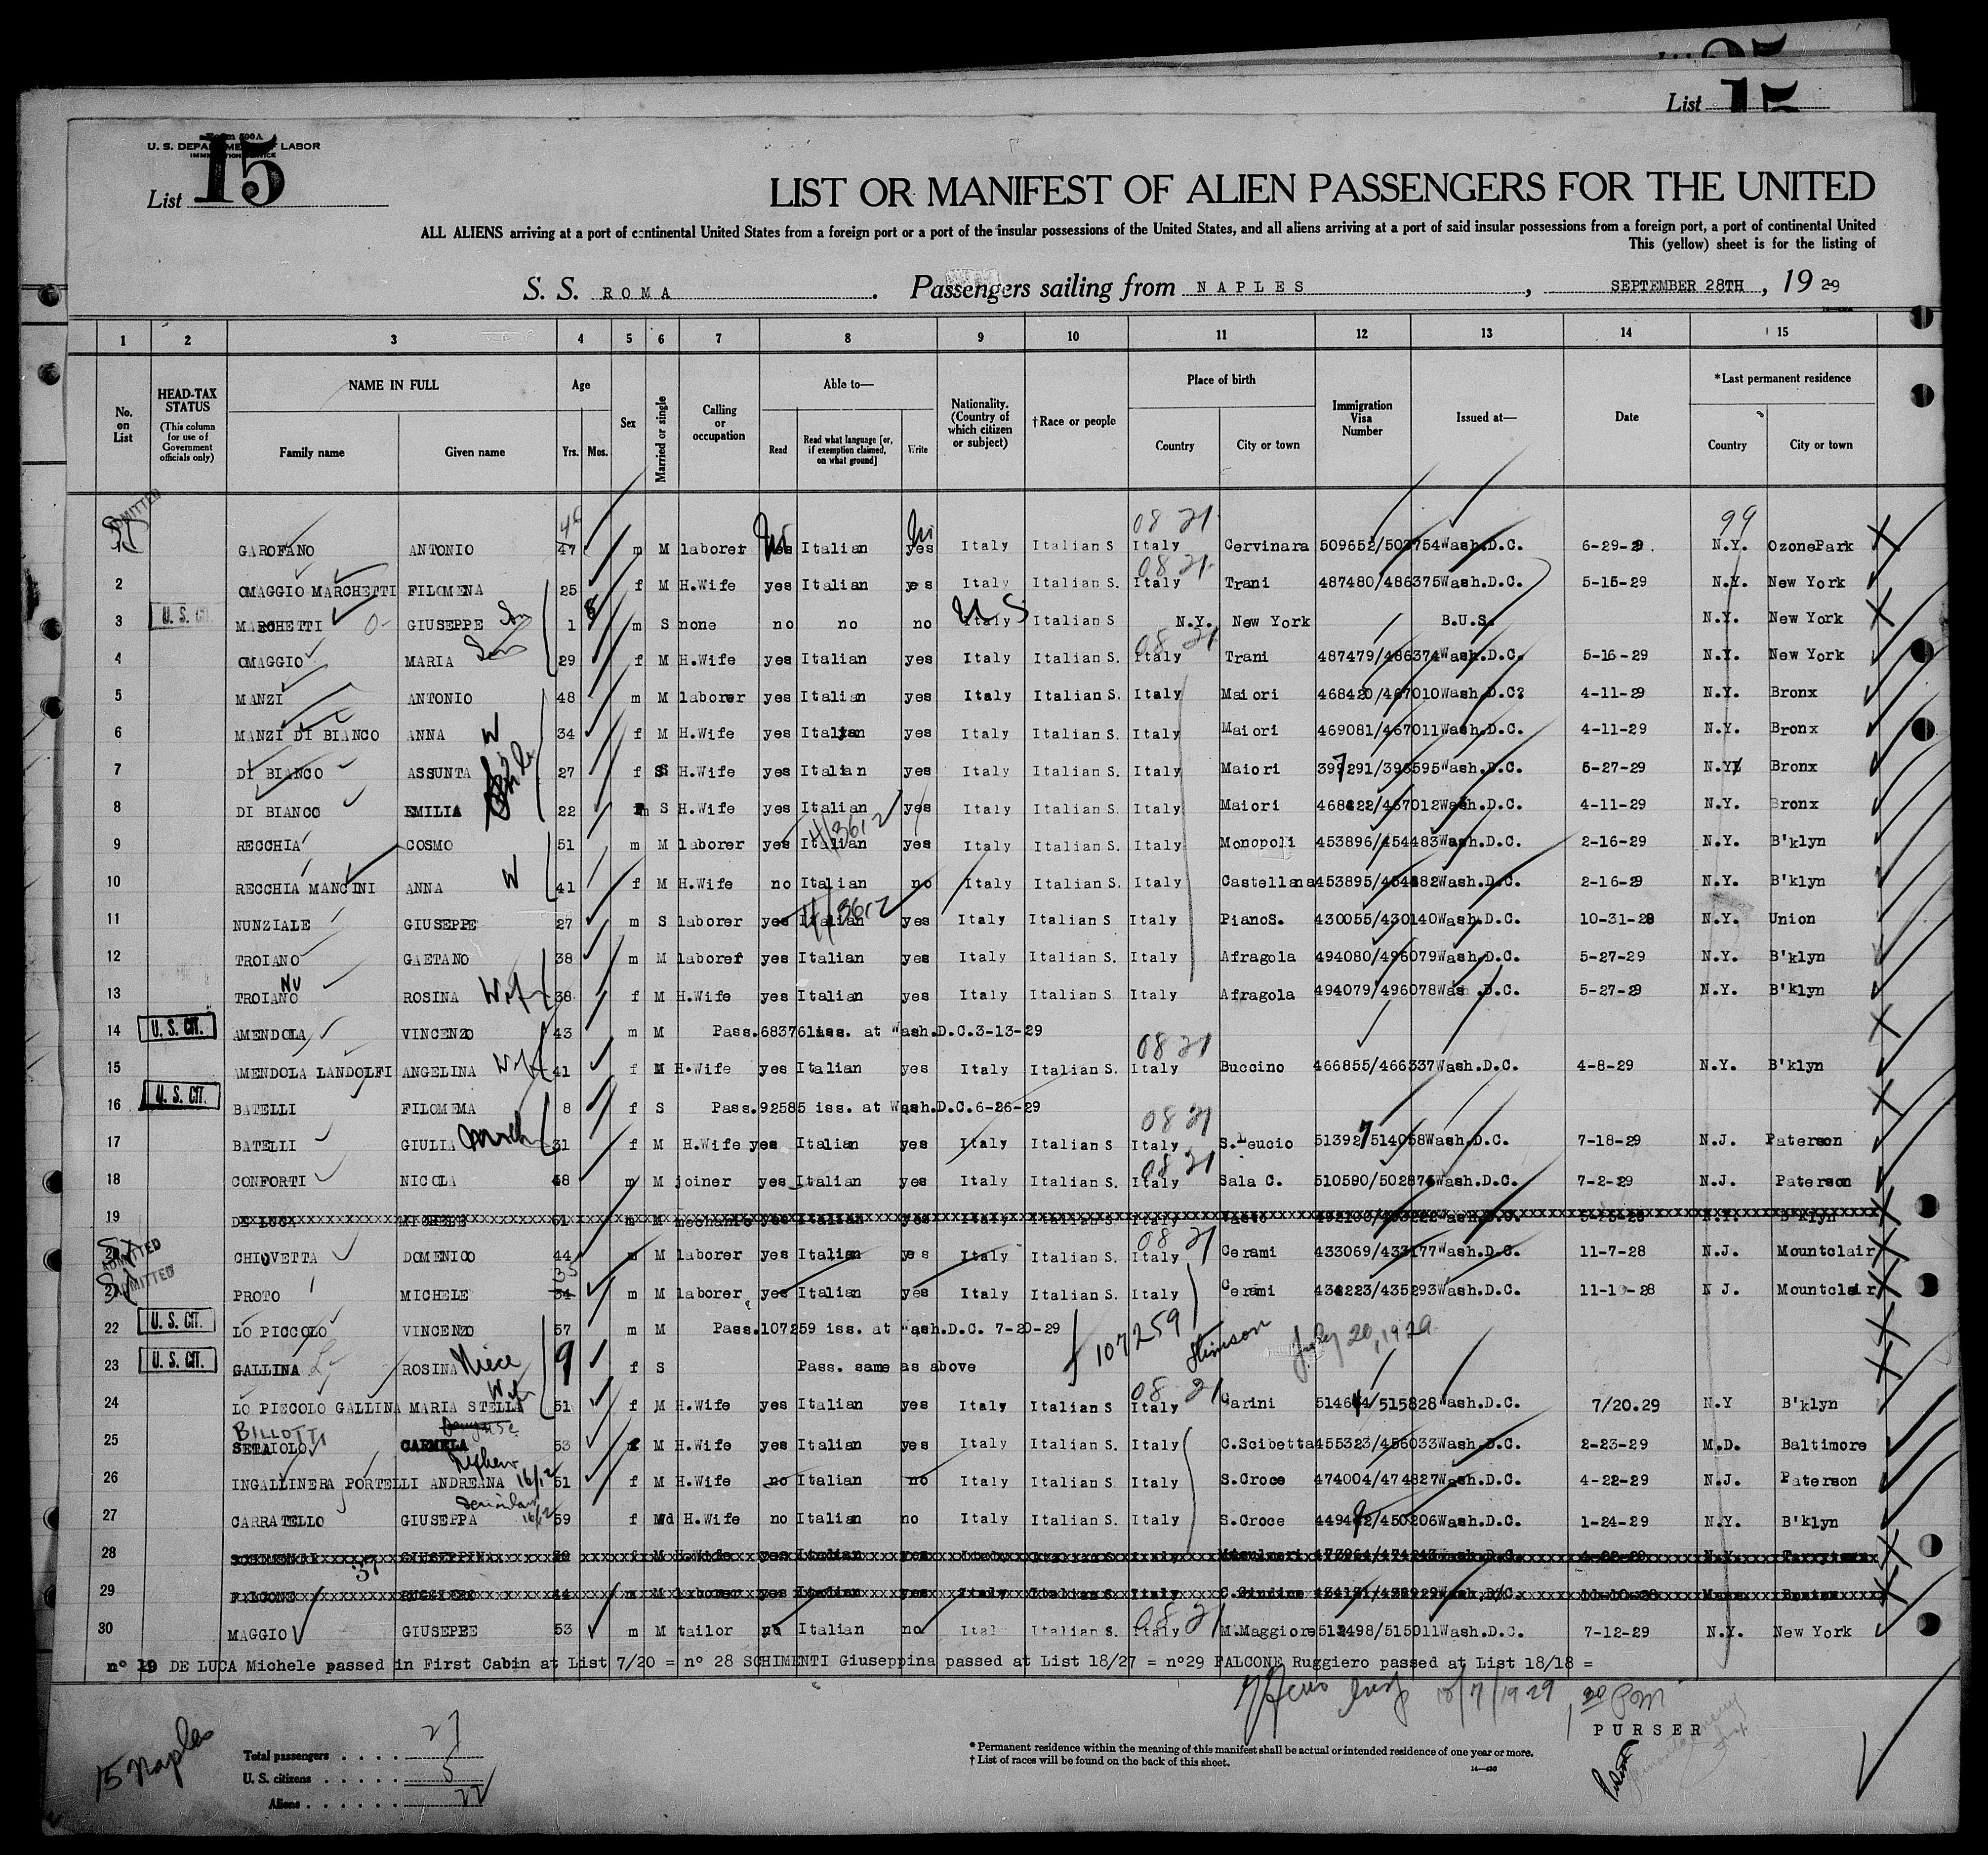 List 15
Form 500A
U. S. DEPARTMENT OF LABOR
IMMIGRATION SERVICE
List 15
LIST OR MANIFEST OF ALIEN PASSENGERS FOR THE UNITED
ALL ALIENS arriving at a port of continental United States from a foreign port or a port of the insular possessions of the United States, and all aliens arriving at a port of said insular possessions from a foreign port, a port of continental United
This (yellow) sheet is for the listing of
S. S. ROMA . Passengers sailing from NAPLES , SEPTEMBER 28TH , 19 29
1 2 3 4 5 6 7 8 9 10 11 12 13 14 15
No. on List HEAD-TAX STATUS (This column for use of Government officials only) NAME IN FULL Family name Given name Age Yrs. Mos. Sex Married or single Calling or occupation Able to— Read Read what language [or, if exemption claimed, on what ground] Write Nationality. (Country of which citizen or subject) †Race or people Place of birth Country City or town Immigration Visa Number Issued at— Date *Last permanent residence Country City or town
ADMITTED 46 08 21 99
GAROFANO ANTONIO 47 m M laborer yes Italian yes Italy Italian S Italy Cervinara Wash.D.C. 6-29-29 N.Y. OzonePark
08 21
2 OMAGGIO MARCHETTI FILOMENA 25 f M H.Wife yes Italian yes Italy Italian S. Italy Trani 487480/486375 Wash.D.C. 5-15-29 N.Y. New York
3 U. S. CIT. MARCHETTI GIUSEPPE Son 1 8 m S none no no no Italy U S Italian S N.Y. New York B.U.S. N.Y. New York
08 21
4 OMAGGIO MARIA 29 f M H.Wife yes Italian yes Italy Italian S. Italy Trani 487479/486374 Wash.D.C. 5-16-29 N.Y. New York
5 MANZI ANTONIO 48 m M laborer yes Italian yes Italy Italian S. Italy Maiori 468420/467010 Wash.D.C. 4-11-29 N.Y. Bronx
6 MANZI DI BIANCO ANNA W 34 f M H.Wife yes Italian yes Italy Italian S. Italy Maiori 469081/467011 Wash.D.C. 4-11-29 N.Y. Bronx
7 DI BIANCO ASSUNTA 27 f S H.Wife yes Italian yes Italy Italian S. Italy Maiori Wash.D.C. 5-27-29 N.Y. Bronx
8 DI BIANCO EMILIA 22 S H.Wife yes Italian yes Italy Italian S. Italy Maiori Wash.D.C. 4-11-29 N.Y. Bronx
9 RECCHIA COSMO 51 m M laborer yes Italian yes Italy Italian S. Italy Monopoli 453896/454483 Wash.D.C. 2-16-29 N.Y. B'klyn
10 RECCHIA MANCINI ANNA W 41 f M H.Wife no Italian no Italy Italian S. Italy Castellana 453895/454482 Wash.D.C. 2-16-29 N.Y. B'klyn
11 NUNZIALE GIUSEPPE 27 m S laborer yes Italian yes Italy Italian S Italy PianoS. 430055/430140 Wash.D.C. 10-31-28 N.Y. Union
12 TROIANO GAETANO 38 m M laborer yes Italian yes Italy Italian S. Italy Afragola 494080/496079 Wash.D.C. 5-27-29 N.Y. B'klyn
13 TROIANO ROSINA Wife 38 f M H.Wife yes Italian yes Italy Italian S. Italy Afragola 494079/496078 Wash.D.C. 5-27-29 N.Y. B'klyn
14 U. S. CIT. AMENDOLA VINCENZO 43 m M Pass.683761 iss. at Wash.D.C.3-13-29
08 21
15 AMENDOLA LANDOLFI ANGELINA Wife 41 f M H.Wife yes Italian yes Italy Italian S. Italy Buccino 466855/466337 Wash.D.C. 4-8-29 N.Y. B'klyn
16 U. S. CIT. BATELLI FILOMEMA 8 f S Pass.92585 iss. at Wash.D.C.6-26-29
08 21
17 BATELLI GIULIA 31 f M H.Wife yes Italian yes Italy Italian S Italy S.Leucio 513927/514058 Wash.D.C. 7-18-29 N.J. Paterson
08 21
18 CONFORTI NICOLA 48 m M joiner yes Italian yes Italy Italian S. Italy Sala C. Wash.D.C. 7-2-29 N.J. Paterson
19 DE LUCA MICHELE 51 m M mechanic yes Italian yes Italy Italian S Italy Vasto Wash.D.C. N.Y. B'klyn
08 21
ADMITTED CHIOVETTA DOMENICO 44 m M laborer yes Italian yes Italy Italian S. Italy Cerami 433069/433177 Wash.D.C. 11-7-28 N.J. Mountclair
35
ADMITTED PROTO MICHELE 34 m M laborer yes Italian yes Italy Italian S. Italy Cerami Wash.D.C. 28 N J. Mountclair
22 U. S. CIT. LO PICCOLO VINCENZO 57 m M Pass.107259 iss. at Wash.D.C. 7-20-29 107259 Stimson July 20, 1929
23 U. S. CIT. GALLINA ROSINA Niece 9 f S Pass. same as above
Wife 08 21
24 LO PIECOLO GALLINA MARIA STELLA 51 f M H.Wife yes Italian yes Italy Italian S Italy Carini Wash.D.C. 7/20.29 N.Y B'klyn
BILLOTTI
25 SETAIOLO CARMELA 53 f M H.Wife yes Italian yes Italy Italian S. Italy C.Scibetta 455323/456033 Wash.D.C. 2-23-29 M.D. Baltimore
26 INGALLINERA PORTELLI ANDREANA 51 f M H.Wife no Italian no Italy Italian S. Italy S.Croce 474004/474827 Wash.D.C. 4-22-29 N.J. Paterson
27 CARRATELLO GIUSEPPA 59 f Wd H.Wife no Italian no Italy Italian S. Italy S.Croce Wash.D.C. 1-24-29 N.Y. B'klyn
28 SCHIMENTI GIUSEPPINA f M H.Wife yes Italian yes Italy Italian S Italy Wash.D.C. N.Y. Tarrytown
29 FALCONE RUGGIERO 44 m M laborer yes Italian yes Italy Italian S Italy Wash.D.C. 11-10-28 Mass. Boston
08 21
30 MAGGIO GIUSEPPE 53 m M tailor no Italian no Ital Italian S. Italy M.Maggiore Wash.D.C. 7-12-29 N.Y. New York
n° 19 DE LUCA Michele passed in First Cabin at List 7/20 = n° 28 SCHIMENTI Giuseppina passed at List 18/27 = n°29 FALCONE Ruggiero passed at List 18/18 =
10/7/1929
PURSER
15 Naples
Total passengers . . . . 27
U. S. citizens . . . . . 5
Aliens . . . . . . 22
* Permanent residence within the meaning of this manifest shall be actual or intended residence of one year or more.
† List of races will be found on the back of this sheet.
14—430